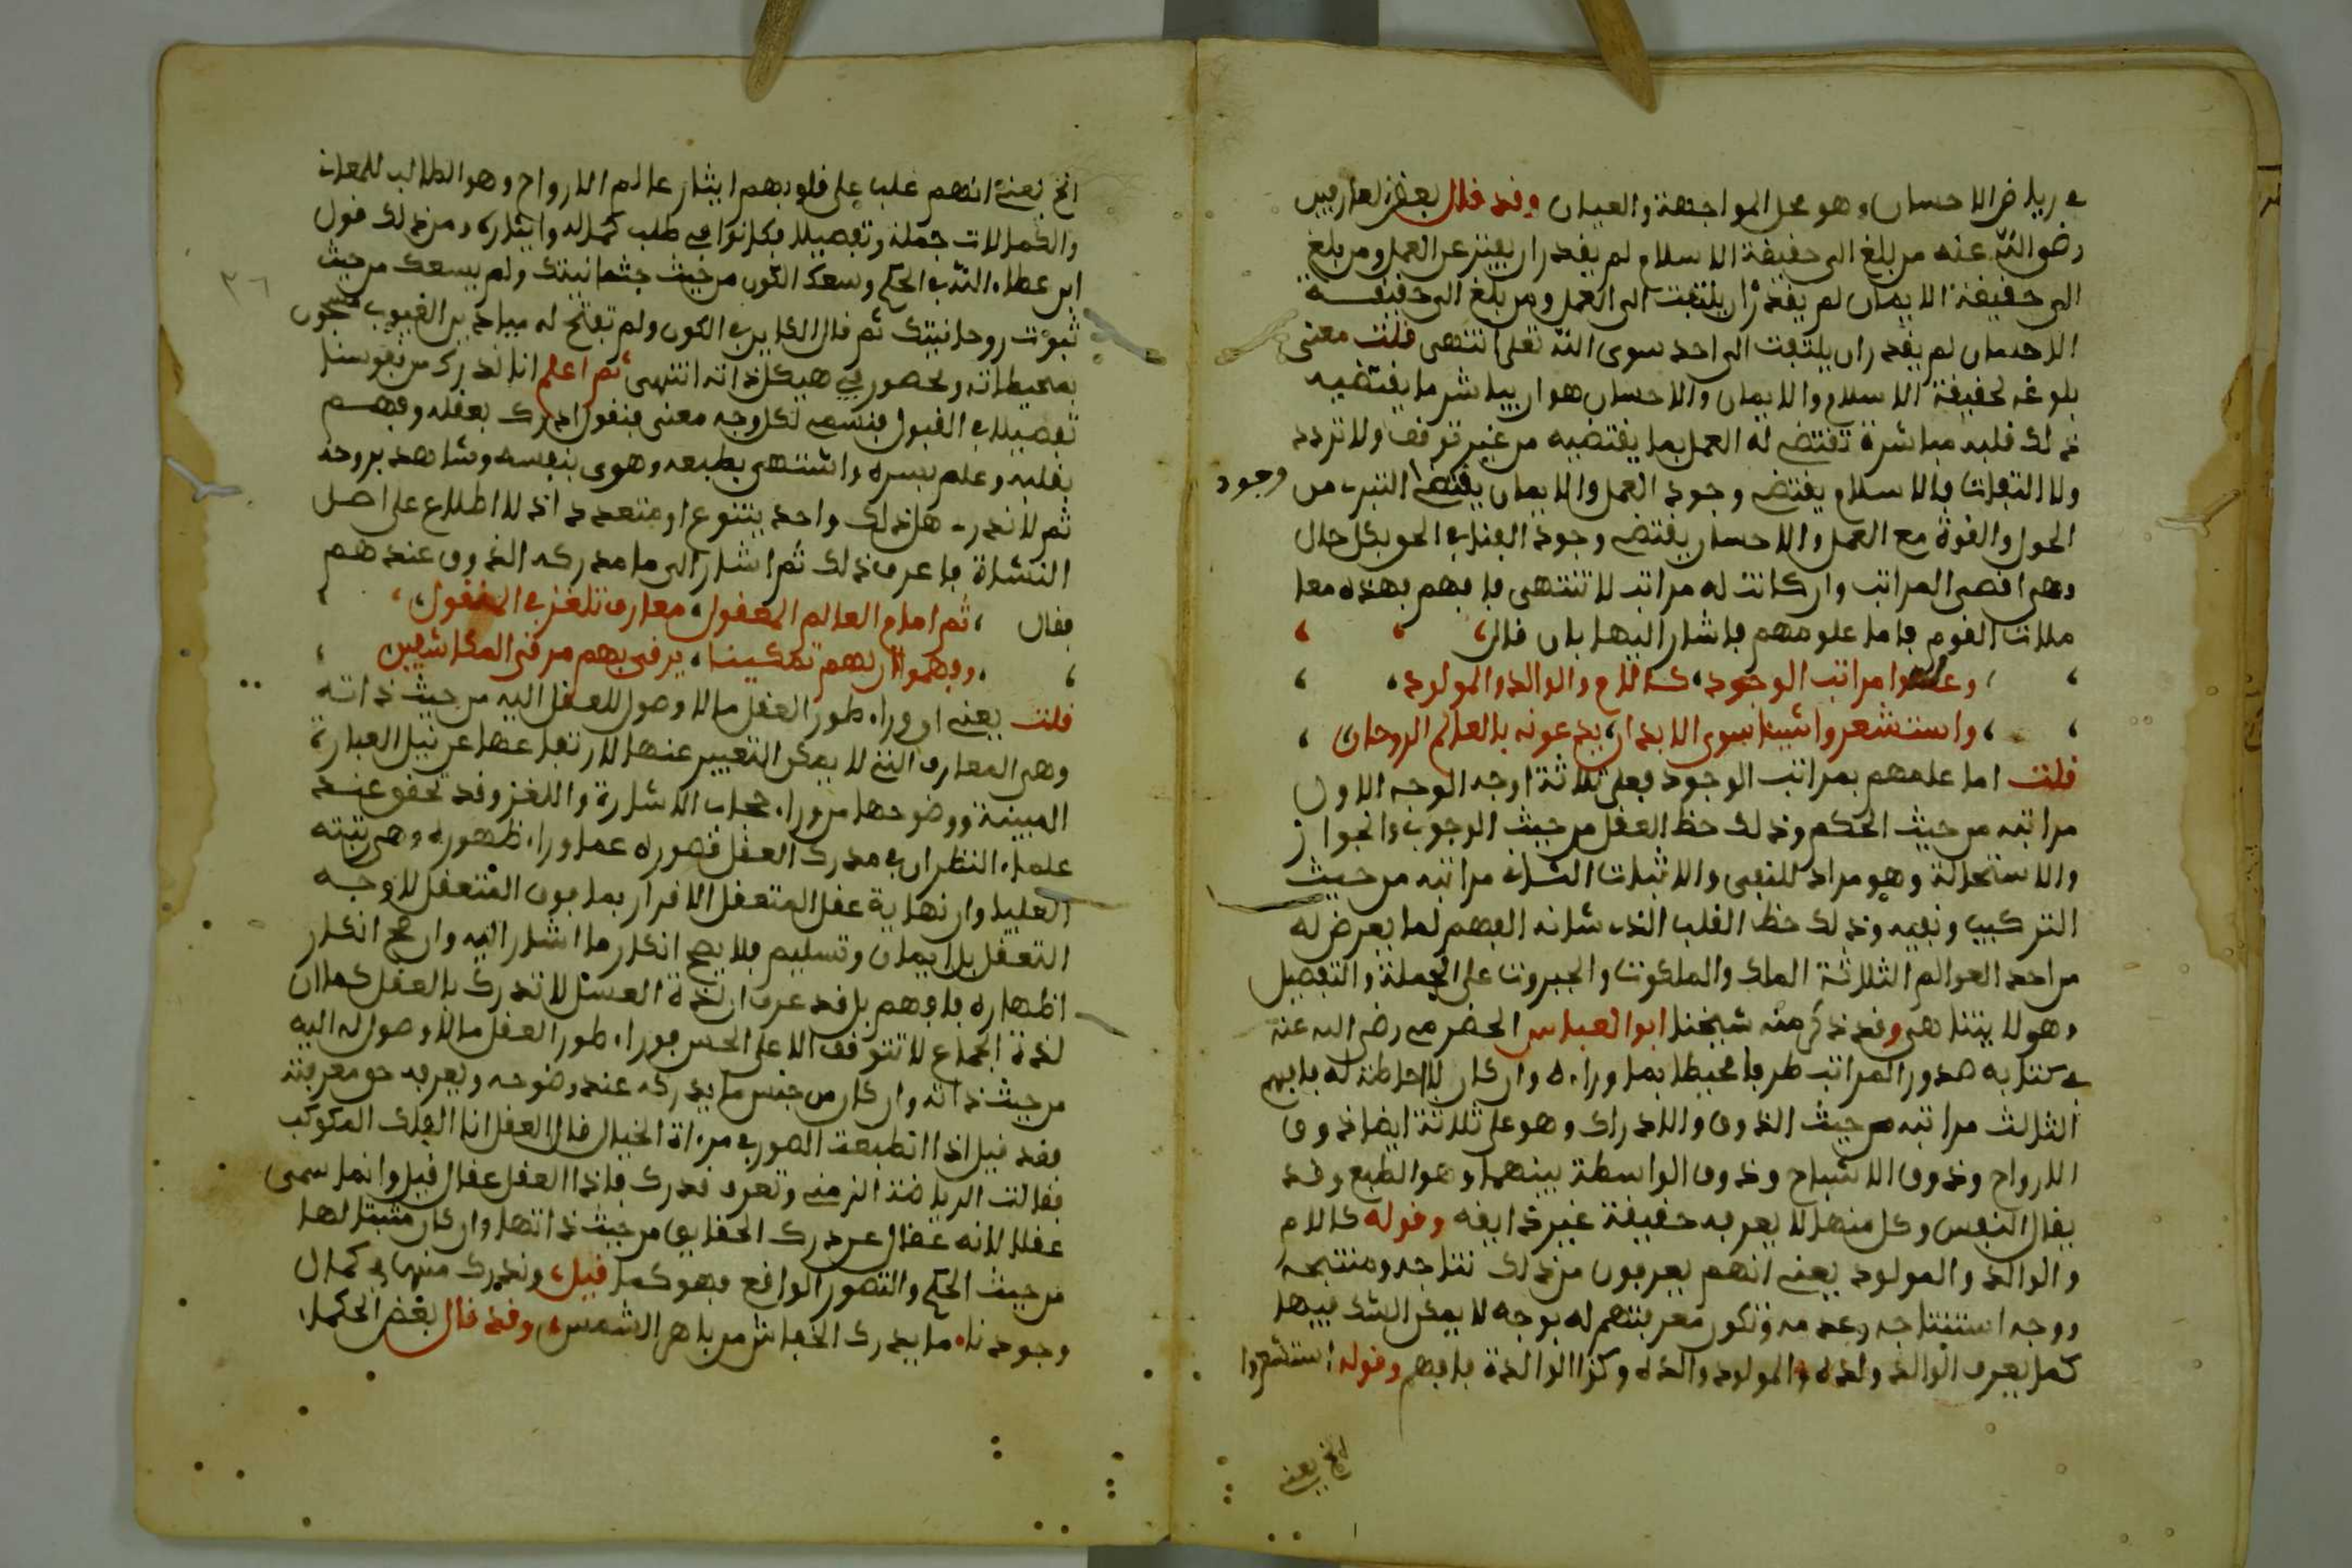 في رياض الاحسان وهو محل المواجهة والعيان وقد قال بعض العارفين
رضي الله عنه من بلغ الى حقيقة الاسلام لم يقدر ان يفتر عن العمل ومن بلغ
الى حقيقة الايمان لم يقدر ان يلتفت الى العمل ومن بلغ الى حقيقة
الاحسان لم يقدر ان يلتفت الى احد سوى الله تعلى انتهى قلت معنى
بلوغه لحقيقة الاسلام والايمان والاحسان هو ان يباشر ما يقتضيه
ذلك قلبه مباشرة تقتضي له العمل بما يقتضيه من غير توقف ولا تردد
ولا التفات فالاسلام يقتضي وجود العمل والايمان يقتضي التبري من وجود
الحول والقوة مع العمل والاحسان يقتضي وجود الفناء في الحق بكل حال
وهي اقصى المراتب وان كانت له مراتب لا تنتهي فافهم فهذه معا
ملات القوم فاما علومهم فاشار اليها بان قال
وعلموا مراتب الوجود كالام والوالد والمولود
واستشعروا شيئا سوى الابدان يدعونه بالعالم الروحاني
قلت اما علمهم بمراتب الوجود فعلى ثلاثة اوجه الوجه الاول
مراتبه من حيث الحكم وذلك حظ العقل من حيث الوجوب والجواز
والاستحالة وهو مراد للنفي والاثبات الثاني مراتبه من حيث
التركيب ونفيه وذلك حظ القلب الذي شانه الفهم لما يعرض له
من احد العوالم الثلاثة الملك والملكوت والجبروت على الجملة والتفصيل
وهو لا يتناهى وقد ذكر منه شيخنا ابو العباس الحضرمي رضي الله عنه
في كتابه صدور المراتب طرفا محيطا بما وراءه وان كان لا احاطة له فافهم
الثالث مراتبه من حيث الذوق والادراك وهو على ثلاثة ايضا ذوق
الارواح وذوق الاشباح وذوق الواسطة بينهما وهو الطبع وقد
يقال النفس وكل منها لا يعرفه حقيقة غير ذايقه وقوله كالام
والوالد والمولود يعني انهم يعرفون من ذلك نتاجه ومنتجه
ووجه استنتاجه وعدمه وتكون معرفتهم له بوجه لا يمكن الشك فيها
كما يعرف الوالد ولده والمولود والده وكذا الوالدة فافهم وقوله استشعروا
الخ يعني
الخ يعني انهم غلب على قلوبهم ايثار عالم الارواح وهو الطالب للمعاني
والكمالات جملة وتفصيلا فكانوا في طلب كماله وايثاره ومن ذلك قول
ابن عطاء الله في الحكم وسعك الكون من حيث جثمانيتك ولم يسعك من حيث
ثبوت روحانيتك ثم قال الكاين في الكون ولم تفتح له ميادين الغيوب مسجون
بمحيطاته ومحصور في هيكل ذاته انتهى ثم اعلم انا ندرك من نفوسنا
تفصيلا في القبول فنسمي لكل وجه معنى فنقول ادرك بعقله وفهم
بقلبه وعلم بسره واشتهى بطبعه وهوى بنفسه وشاهد بروحه
ثم لا ندري هل ذلك واحد يتنوع او متعدد اذ لا اطلاع على اصل
النشاة فاعرف ذلك ثم اشار الى ما مدركه الذوق عندهم
فقال ثم امام العالم المعقول معارف تلغز في المنقول
وفهموا ان لهم تمكينا يرقى بهم مرقى المكاشفين
قلت يعني ان وراء طور العقل ما لا وصول للعقل اليه من حيث ذاته
وهي المعارف التي لا يمكن التعبير عنها لارتفاعها عن نيل العبارة
المبينة ووضوحها من وراء حجاب الاشارة واللغز وقد تحقق عند
علماء النظر ان في مدرك العقل قصوره عما وراء ظهوره وهي رتبته
العليا وان نهاية عقل المتعقل الاقرار بما فوق المتعقل لا وجه
التعقل بل ايمان وتسليم فلا يصح انكار ما اشار اليه وان صح انكار
اظهاره فافهم بل قد عرف ان لذة العسل لا تدرك بالعقل كما ان
لذة الجماع لا تتوقف الا على الحس فوراء طور العقل ما لا وصول له اليه
من حيث ذاته وان كان من جنس ما يدركه عند وضوحه ويعرفه حق معرفته
فقد قيل اذا انطبعت الصور في مرءاة الخيال قال العقل انا الفلك المكوكب
فقالت الرياضة الزمني وتعرف قدرك فاذا العقل عقال قيل وانما سمي
عقلا لانه عقال عن درك الحقايق من حيث ذاتها وان كان مثبتا لها
من حيث الحكم والتصور الواقع فهو كما قيل وندرك منها في كمال
وجودنا ما يدرك الخفاش من باهر الشمس وقد قال بعض الحكماء
٣٦